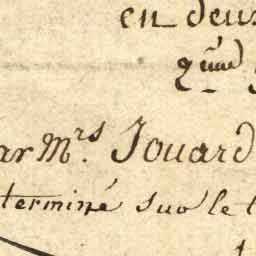 en deux
2ème
ar Mrs. Jouard
terminé sur le